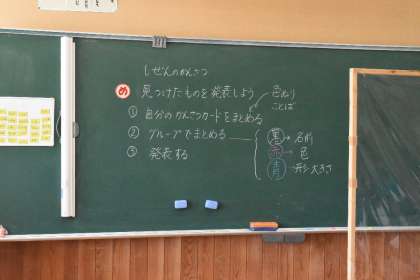 しぜんのかんさつ
め 見つけたものを発表しよう
色ぬり
ことば
① 自分のかんさつカードをまとめる
② グループでまとめる
黄 → 名前
赤 → 色
青 → 形 大きさ
③ 発表する